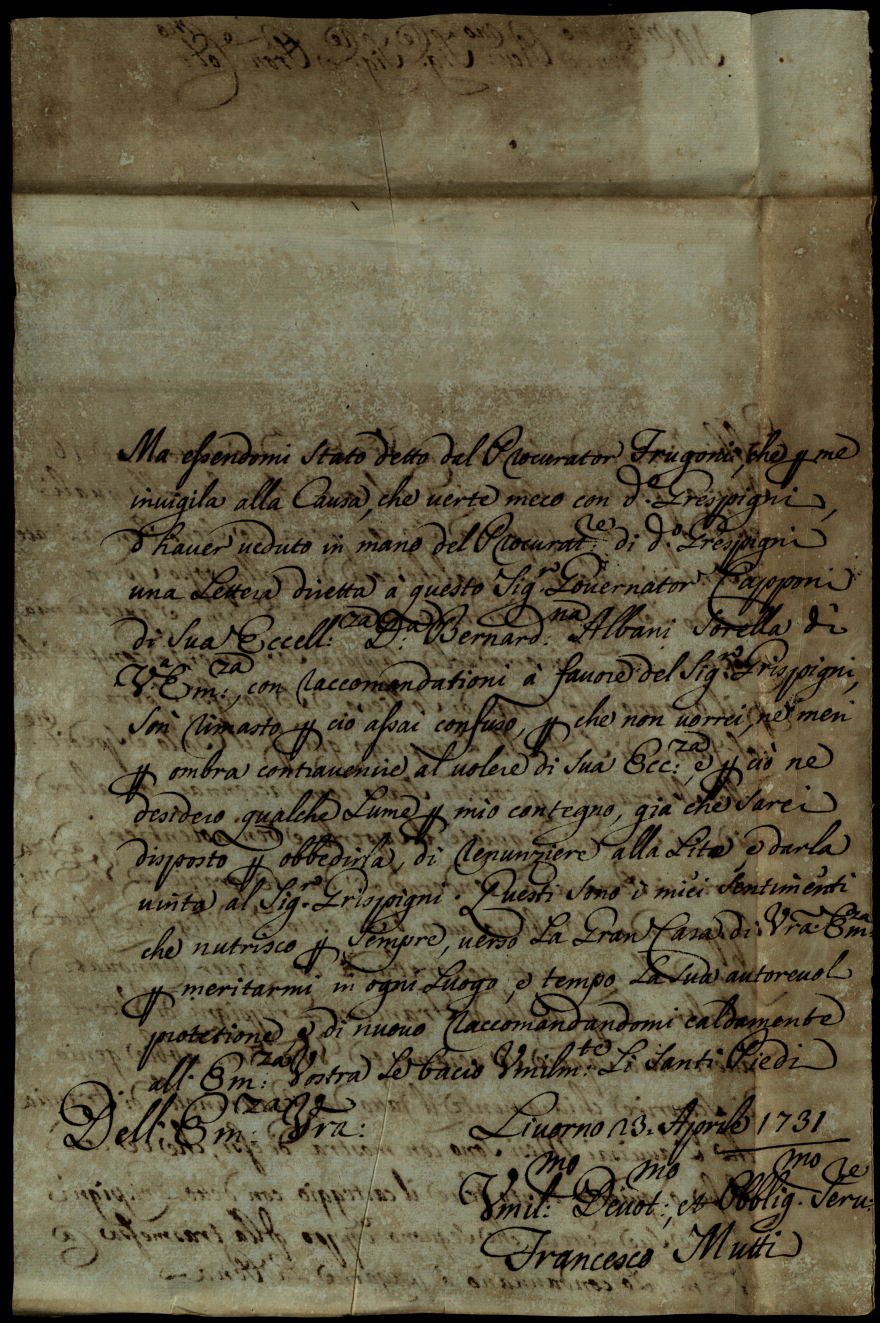 Ma essendomi stato detto dal Procurator Frugoni, che ꝑ me
invigila alla Causa, che verte meco con d.º Grespigni,
d'haver veduto in mano del Procurat.re di d.º Grespigni
una Lettera diretta à questo Sig.r Governator Capponi
di Sua Eccell.za D.a Bernard.na Albani Sorella di
V.a Em.za, con raccomandationi à favore del Sig.re Grispigni,
son rimasto ꝑ ciò assai confuso, ꝑ che non vorrei, ne men
ꝑ ombra contravenire al volere di Sua Ecc.za, e ꝑ ciò ne
desidero qualche Lume ꝑ mio contegno, già che sarei
disposto ꝑ obbedirla, di renunziere alla Lite, e darla
vinta al Sig.re Grispigni. Questi sono i miei sentimenti
che nutrisco ꝑ sempre, verso La Gran Casa di Vra Em.za
ꝑ meritarmi in ogni Luogo, e tempo La sua autorevol
protetione, e di nuovo raccomandandomi caldamente
all' Em.za Vostra Le bacio Vmilm.te Li Santi Piedi
Dell' Em.za Vra:
Livorno 13. Aprile 1731
Vmil.mo Devot.mo, et Obblig.mo Seru.re
Francesco Mutti